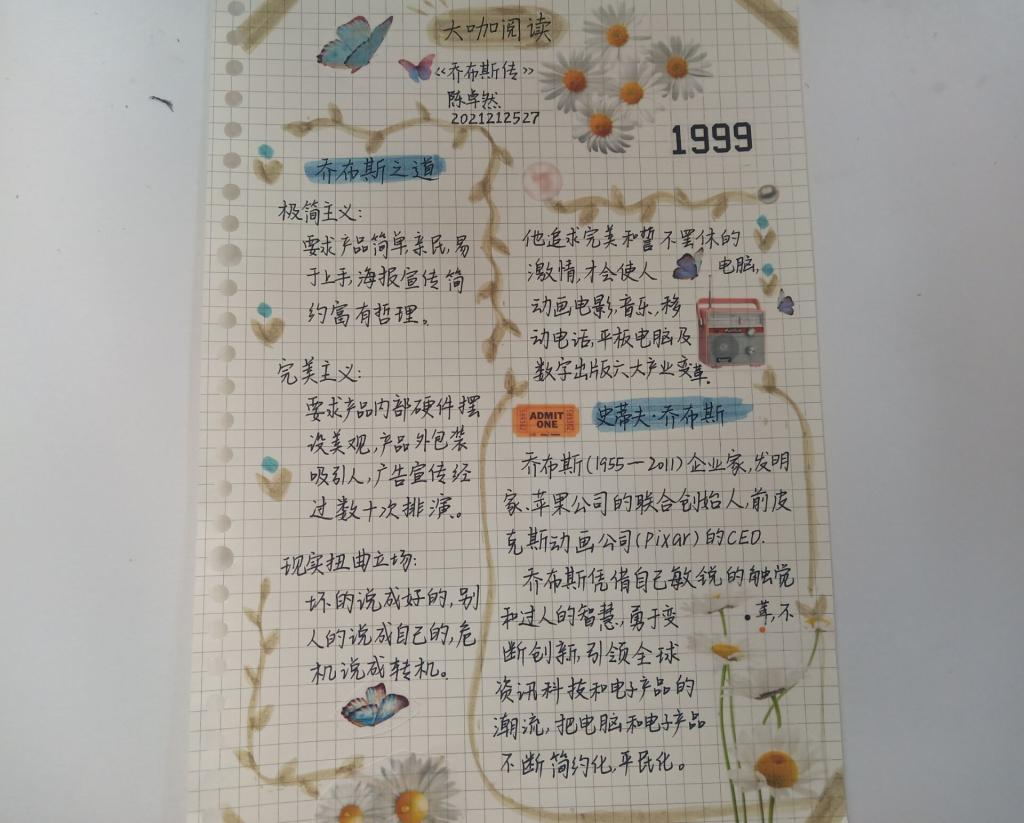 大咖阅读
《乔布斯传》
陈卓然
2021212527
1999
乔布斯之道
极简主义:
要求产品简单,亲民,易
于上手,海报宣传简
约富有哲理。
完美主义:
要求产品内部硬件摆
设美观,产品外包装
吸引人,广告宣传经
过数十次排演。
现实扭曲立场:
坏的说成好的,别
人的说成自己的,危
机说成转机。
他追求完美和誓不罢休的
激情,才会使人 电脑,
动画电影,音乐,移
动电话,平板电脑及
数字出版六大产业变革.
ADMIT
ONE
史蒂夫·乔布斯
乔布斯(1955—2011)企业家,发明
家、苹果公司的联合创始人,前皮
克斯动画公司(Pixar)的CEO.
乔布斯凭借自己敏锐的触觉
和过人的智慧,勇于变革,不
断创新,引领全球
资讯科技和电子产品的
潮流,把电脑和电子产品
不断简约化,平民化。